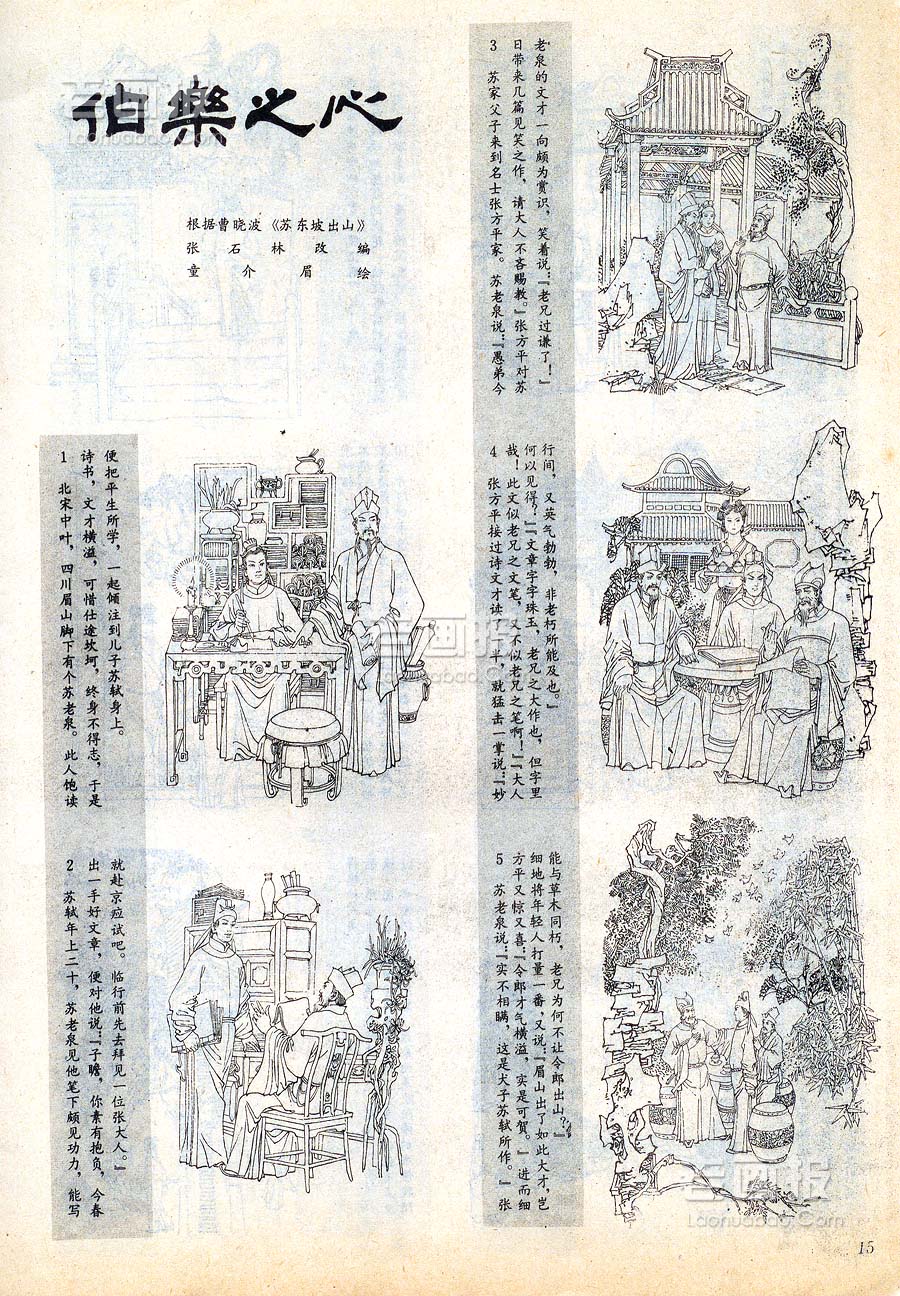 伯樂之心
根据曹晓波《苏东坡出山》
张石林改编
童介眉绘
1 北宋中叶，四川眉山脚下有个苏老泉。此人饱读
诗书，文才横溢，可惜仕途坎坷，终身不得志，于是
便把平生所学，一起倾注到儿子苏轼身上。
2 苏轼年上二十，苏老泉见他笔下颇见功力，能写
出一手好文章，便对他说：“子瞻，你素有抱负，今春
就赴京应试吧。临行前先去拜见一位张大人。”
3 苏家父子来到名士张方平家。苏老泉说：“愚弟今
日带来几篇见笑之作，请大人不吝赐教。”张方平对苏
老泉的文才一向颇为赏识，笑着说：“老兄过谦了！”
4 张方平接过诗文才读一半，就猛击一掌说：“妙
哉！此文似老兄之文笔，又不似老兄之笔啊！”“大人
何以见得？”“文章字字珠玉，老兄之大作也，但字里
行间，又英气勃勃，非老朽所能及也。”
5 苏老泉说：“实不相瞒，这是犬子苏轼所作。”张
方平又惊又喜：“令郎才气横溢，实是可贺。”进而细
细地将年轻人打量一番，又说：“眉山出了如此大才，岂
能与草木同朽，老兄为何不让令郎出山？”
老画报
Laohuabao.Com
15